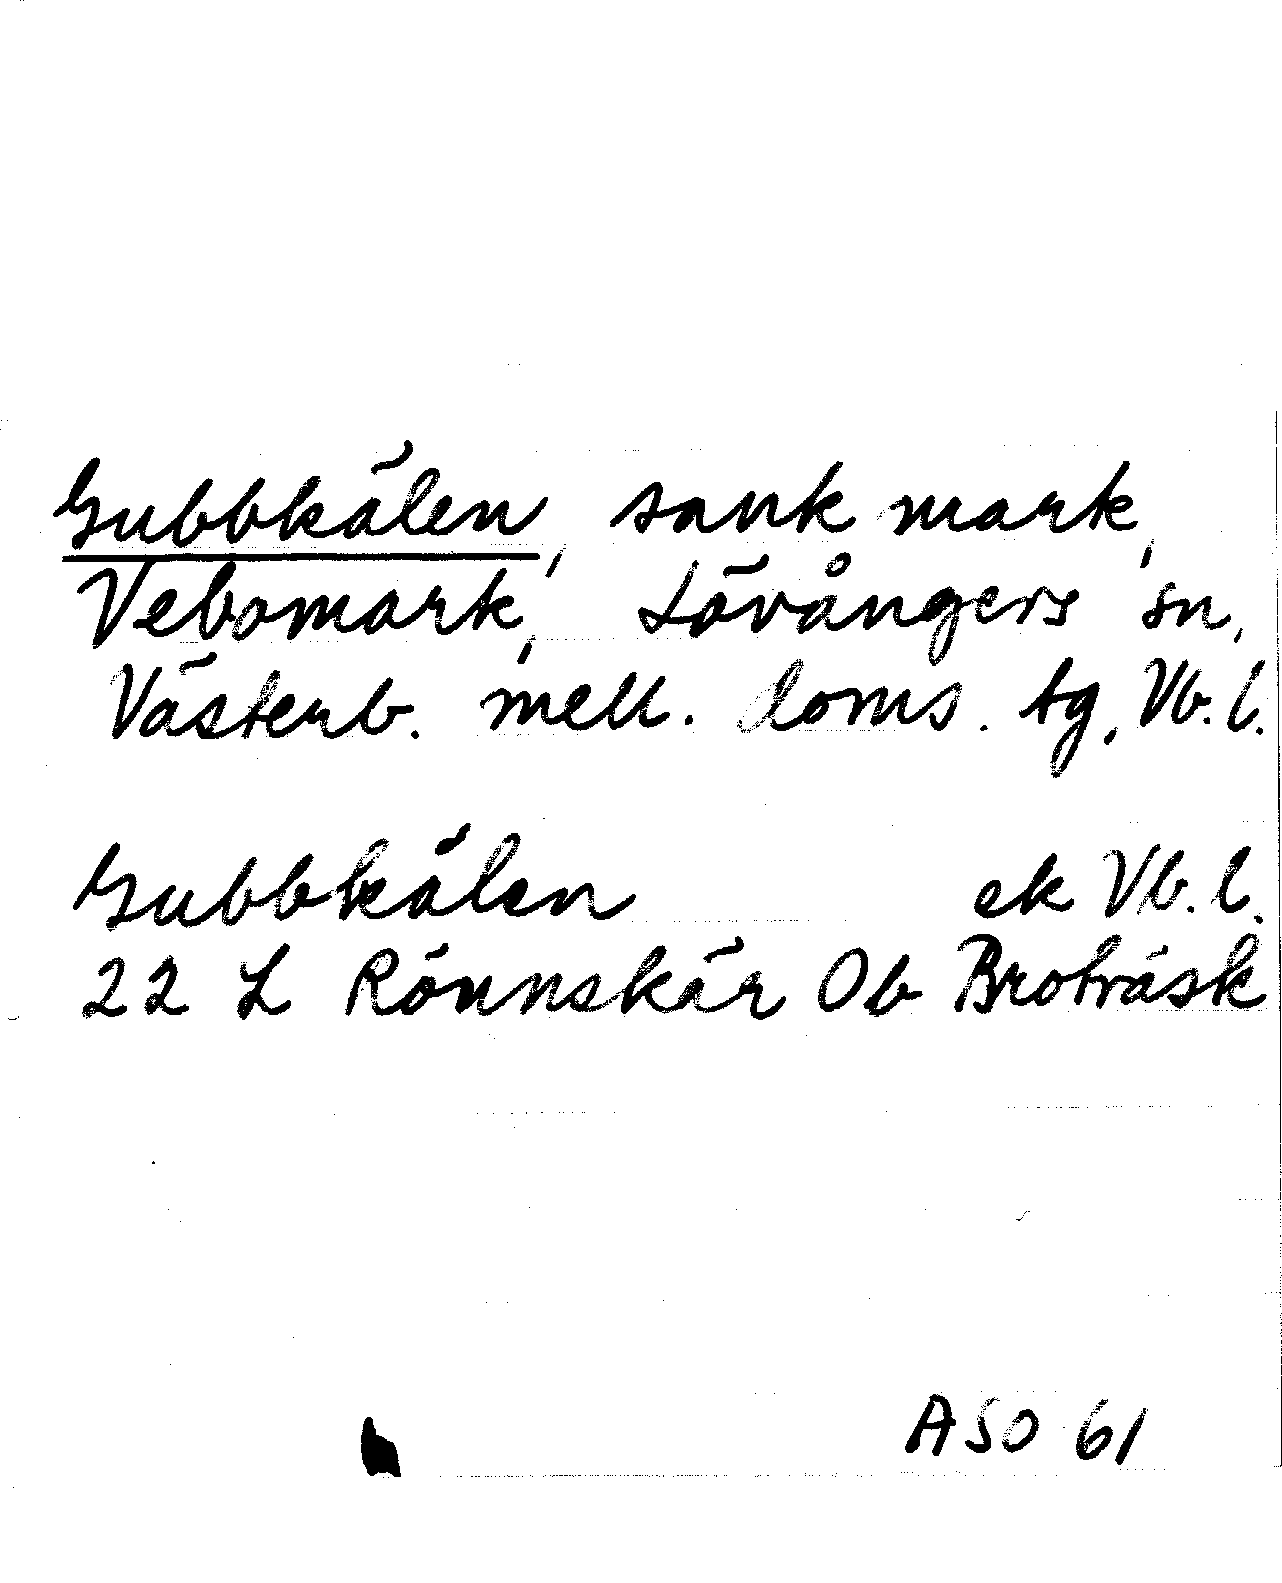 Gubbkälen, sank mark,
Vebomark, Lövångers sn,
Västerb. mell. doms. tg, Vb. l.
Gubbkälen ek Vb. l.
22 L Rönnskär Ob Broträsk
ASO 61